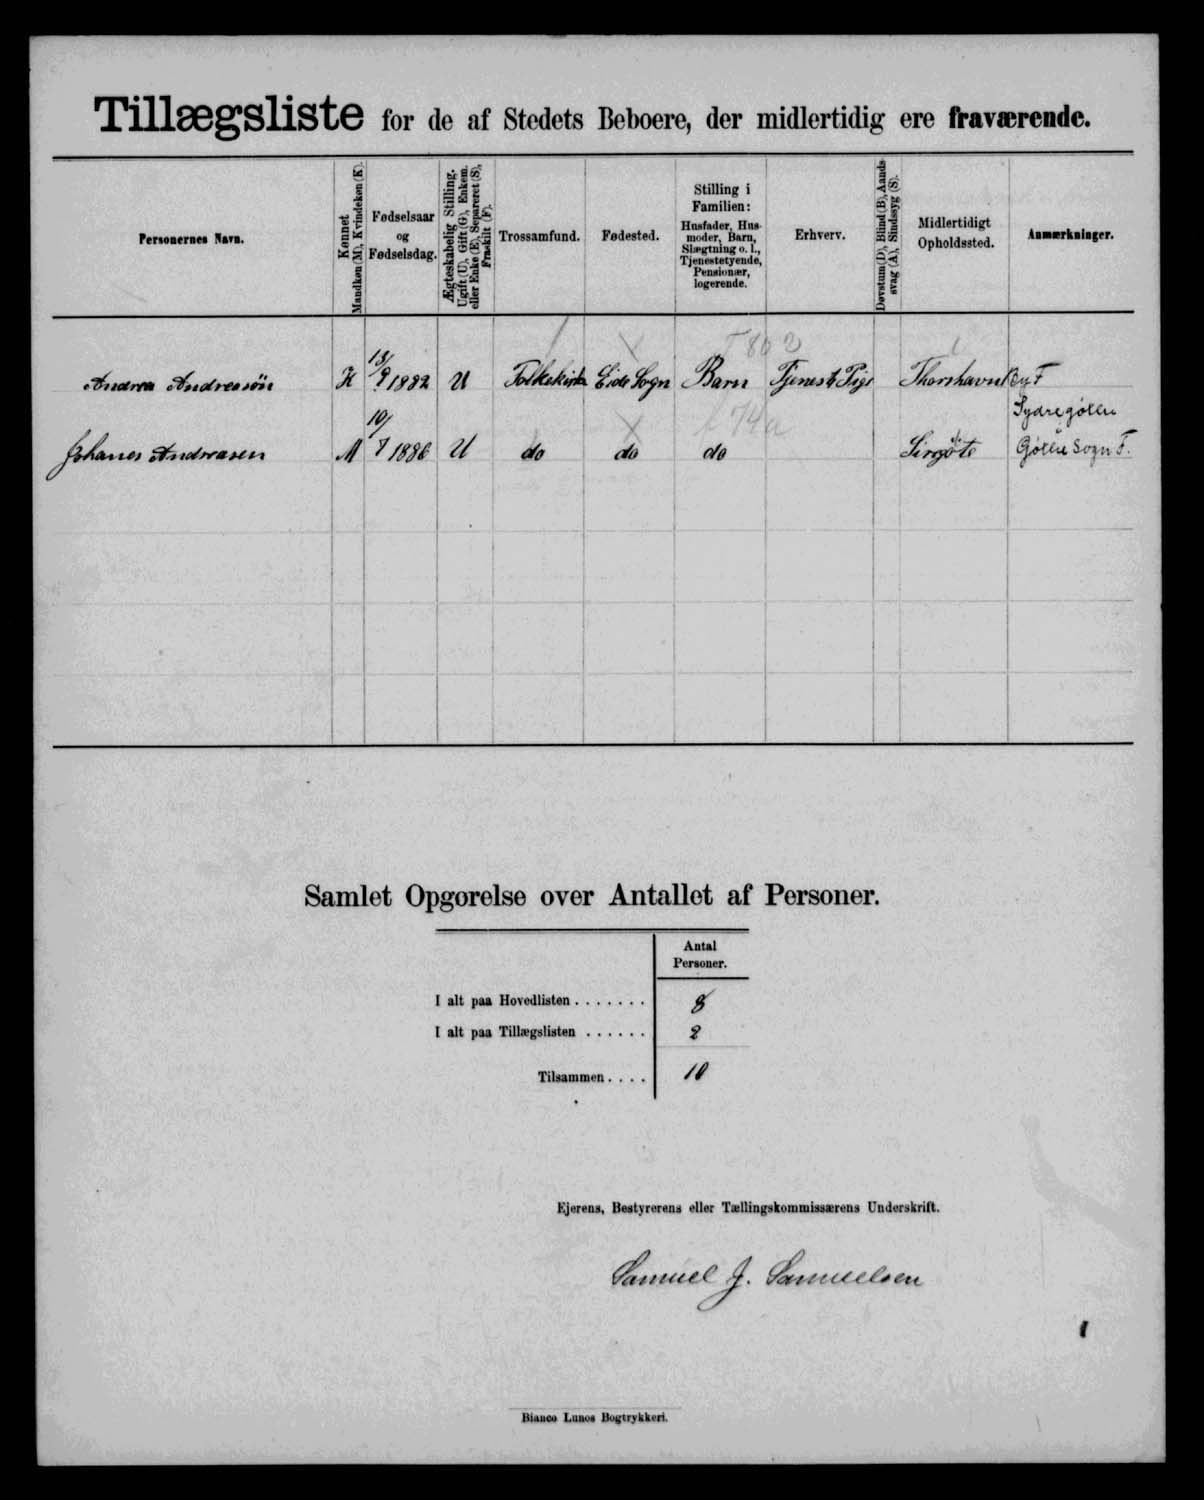 Tillægsliste for de af Stedets Beboere, der midlertidig ere fraværende.
Personernes Navn.
Kønnet
Mandkøn (M), Kvindekøn (K).
Fødselsaar
og
Fødselsdag.
Ægteskabelig Stilling.
Ugift (U), Gift (G), Enkem.
eller Enke (E), Separeret (S),
Fraskilt (F).
Trossamfund.
Fødested.
Stilling i
Familien:
Husfader, Hus-
moder, Barn,
Slægtning o. l.,
Tjenestetyende,
Pensionær,
logerende.
Erhverv.
Døvstum (D), Blind (B), Aands-
svag (A), Sindssyg (S).
Midlertidigt
Opholdssted.
Anmærkninger.
T 802
Andrea Andreasön K 13/9 1882 U Folkekirke Eide Sogn Barn Tjeneste Pige Thorshavn By F
t 74a
Sydregøtu
Johanes Andreasen M 10/7 1886 U do do do Gøtu Sogn F.
Samlet Opgørelse over Antallet af Personer.
Antal
Personer.
I alt paa Hovedlisten . . . . . . . 8
I alt paa Tillægslisten . . . . . . 2
Tilsammen . . . . 10
Ejerens, Bestyrerens eller Tællingskommissærens Underskrift.
Samuel J. Samuelsen
Bianco Lunos Bogtrykkeri.